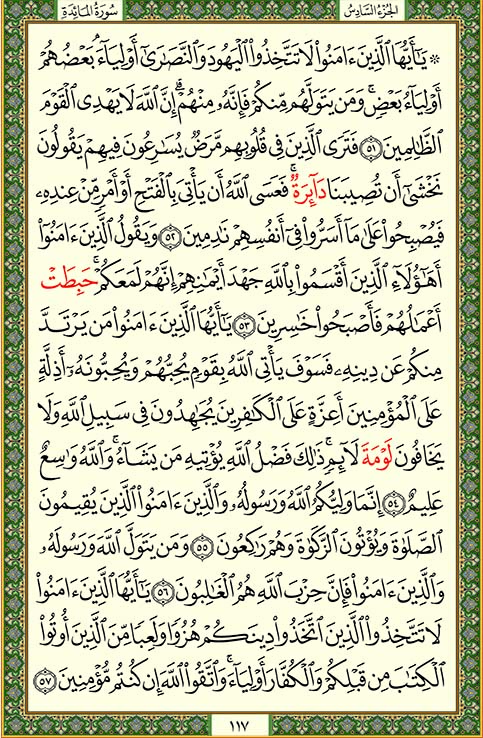 سُورَةُ المَائِدَةِ الجُزْءُ السَّادِسُ
۞ يَٰٓأَيُّهَا ٱلَّذِينَ ءَامَنُوا۟ لَا تَتَّخِذُوا۟ ٱلْيَهُودَ وَٱلنَّصَٰرَىٰٓ أَوْلِيَآءَۘ بَعْضُهُمْ
أَوْلِيَآءُ بَعْضٍۚ وَمَن يَتَوَلَّهُم مِّنكُمْ فَإِنَّهُۥ مِنْهُمْۗ إِنَّ ٱللَّهَ لَا يَهْدِى ٱلْقَوْمَ
ٱلظَّٰلِمِينَ ٥١ فَتَرَى ٱلَّذِينَ فِى قُلُوبِهِم مَّرَضٌ يُسَٰرِعُونَ فِيهِمْ يَقُولُونَ
نَخْشَىٰٓ أَن تُصِيبَنَا دَآئِرَةٌۚ فَعَسَى ٱللَّهُ أَن يَأْتِىَ بِٱلْفَتْحِ أَوْ أَمْرٍ مِّنْ عِندِهِۦ
فَيُصْبِحُوا۟ عَلَىٰ مَآ أَسَرُّوا۟ فِىٓ أَنفُسِهِمْ نَٰدِمِينَ ٥٢ وَيَقُولُ ٱلَّذِينَ ءَامَنُوٓا۟
أَهَٰٓؤُلَآءِ ٱلَّذِينَ أَقْسَمُوا۟ بِٱللَّهِ جَهْدَ أَيْمَٰنِهِمْ إِنَّهُمْ لَمَعَكُمْۚ حَبِطَتْ
أَعْمَٰلُهُمْ فَأَصْبَحُوا۟ خَٰسِرِينَ ٥٣ يَٰٓأَيُّهَا ٱلَّذِينَ ءَامَنُوا۟ مَن يَرْتَدَّ
مِنكُمْ عَن دِينِهِۦ فَسَوْفَ يَأْتِى ٱللَّهُ بِقَوْمٍ يُحِبُّهُمْ وَيُحِبُّونَهُۥٓ أَذِلَّةٍ
عَلَى ٱلْمُؤْمِنِينَ أَعِزَّةٍ عَلَى ٱلْكَٰفِرِينَ يُجَٰهِدُونَ فِى سَبِيلِ ٱللَّهِ وَلَا
يَخَافُونَ لَوْمَةَ لَآئِمٍۚ ذَٰلِكَ فَضْلُ ٱللَّهِ يُؤْتِيهِ مَن يَشَآءُۚ وَٱللَّهُ وَٰسِعٌ
عَلِيمٌ ٥٤ إِنَّمَا وَلِيُّكُمُ ٱللَّهُ وَرَسُولُهُۥ وَٱلَّذِينَ ءَامَنُوا۟ ٱلَّذِينَ يُقِيمُونَ
ٱلصَّلَوٰةَ وَيُؤْتُونَ ٱلزَّكَوٰةَ وَهُمْ رَٰكِعُونَ ٥٥ وَمَن يَتَوَلَّ ٱللَّهَ وَرَسُولَهُۥ
وَٱلَّذِينَ ءَامَنُوا۟ فَإِنَّ حِزْبَ ٱللَّهِ هُمُ ٱلْغَٰلِبُونَ ٥٦ يَٰٓأَيُّهَا ٱلَّذِينَ ءَامَنُوا۟
لَا تَتَّخِذُوا۟ ٱلَّذِينَ ٱتَّخَذُوا۟ دِينَكُمْ هُزُوًا وَلَعِبًا مِّنَ ٱلَّذِينَ أُوتُوا۟
ٱلْكِتَٰبَ مِن قَبْلِكُمْ وَٱلْكُفَّارَ أَوْلِيَآءَۚ وَٱتَّقُوا۟ ٱللَّهَ إِن كُنتُم مُّؤْمِنِينَ ٥٧
١١٧